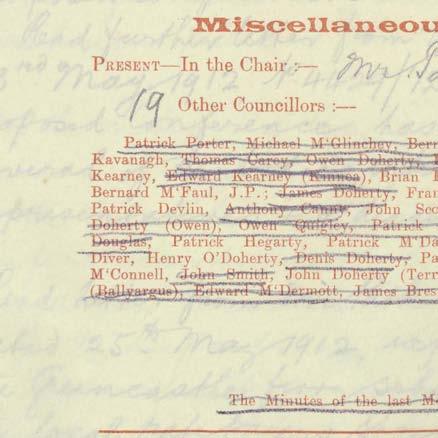 Miscellaneou
PRESENT—In the Chair :— Mr.
19 Other Councillors :—
Patrick Porter, Michael M‘Glinchey, Bern
Kavanagh, Thomas Carey, Owen Doherty,
Kearney, Edward Kearney (Kinnea), Brian
Bernard M‘Faul, J.P.; James Doherty, Fran
Patrick Devlin, Anthony Canny, John Sco
Doherty (Owen), Owen Quigley, Patrick
Douglas, Patrick Hegarty, Patrick M‘Da
Diver, Henry O’Doherty, Denis Doherty, Pa
M‘Connell, John Smith, John Doherty (Terr
(Ballyargus), Edward M‘Dermott, James Bres
25th May 1912
The Minutes of the last Me